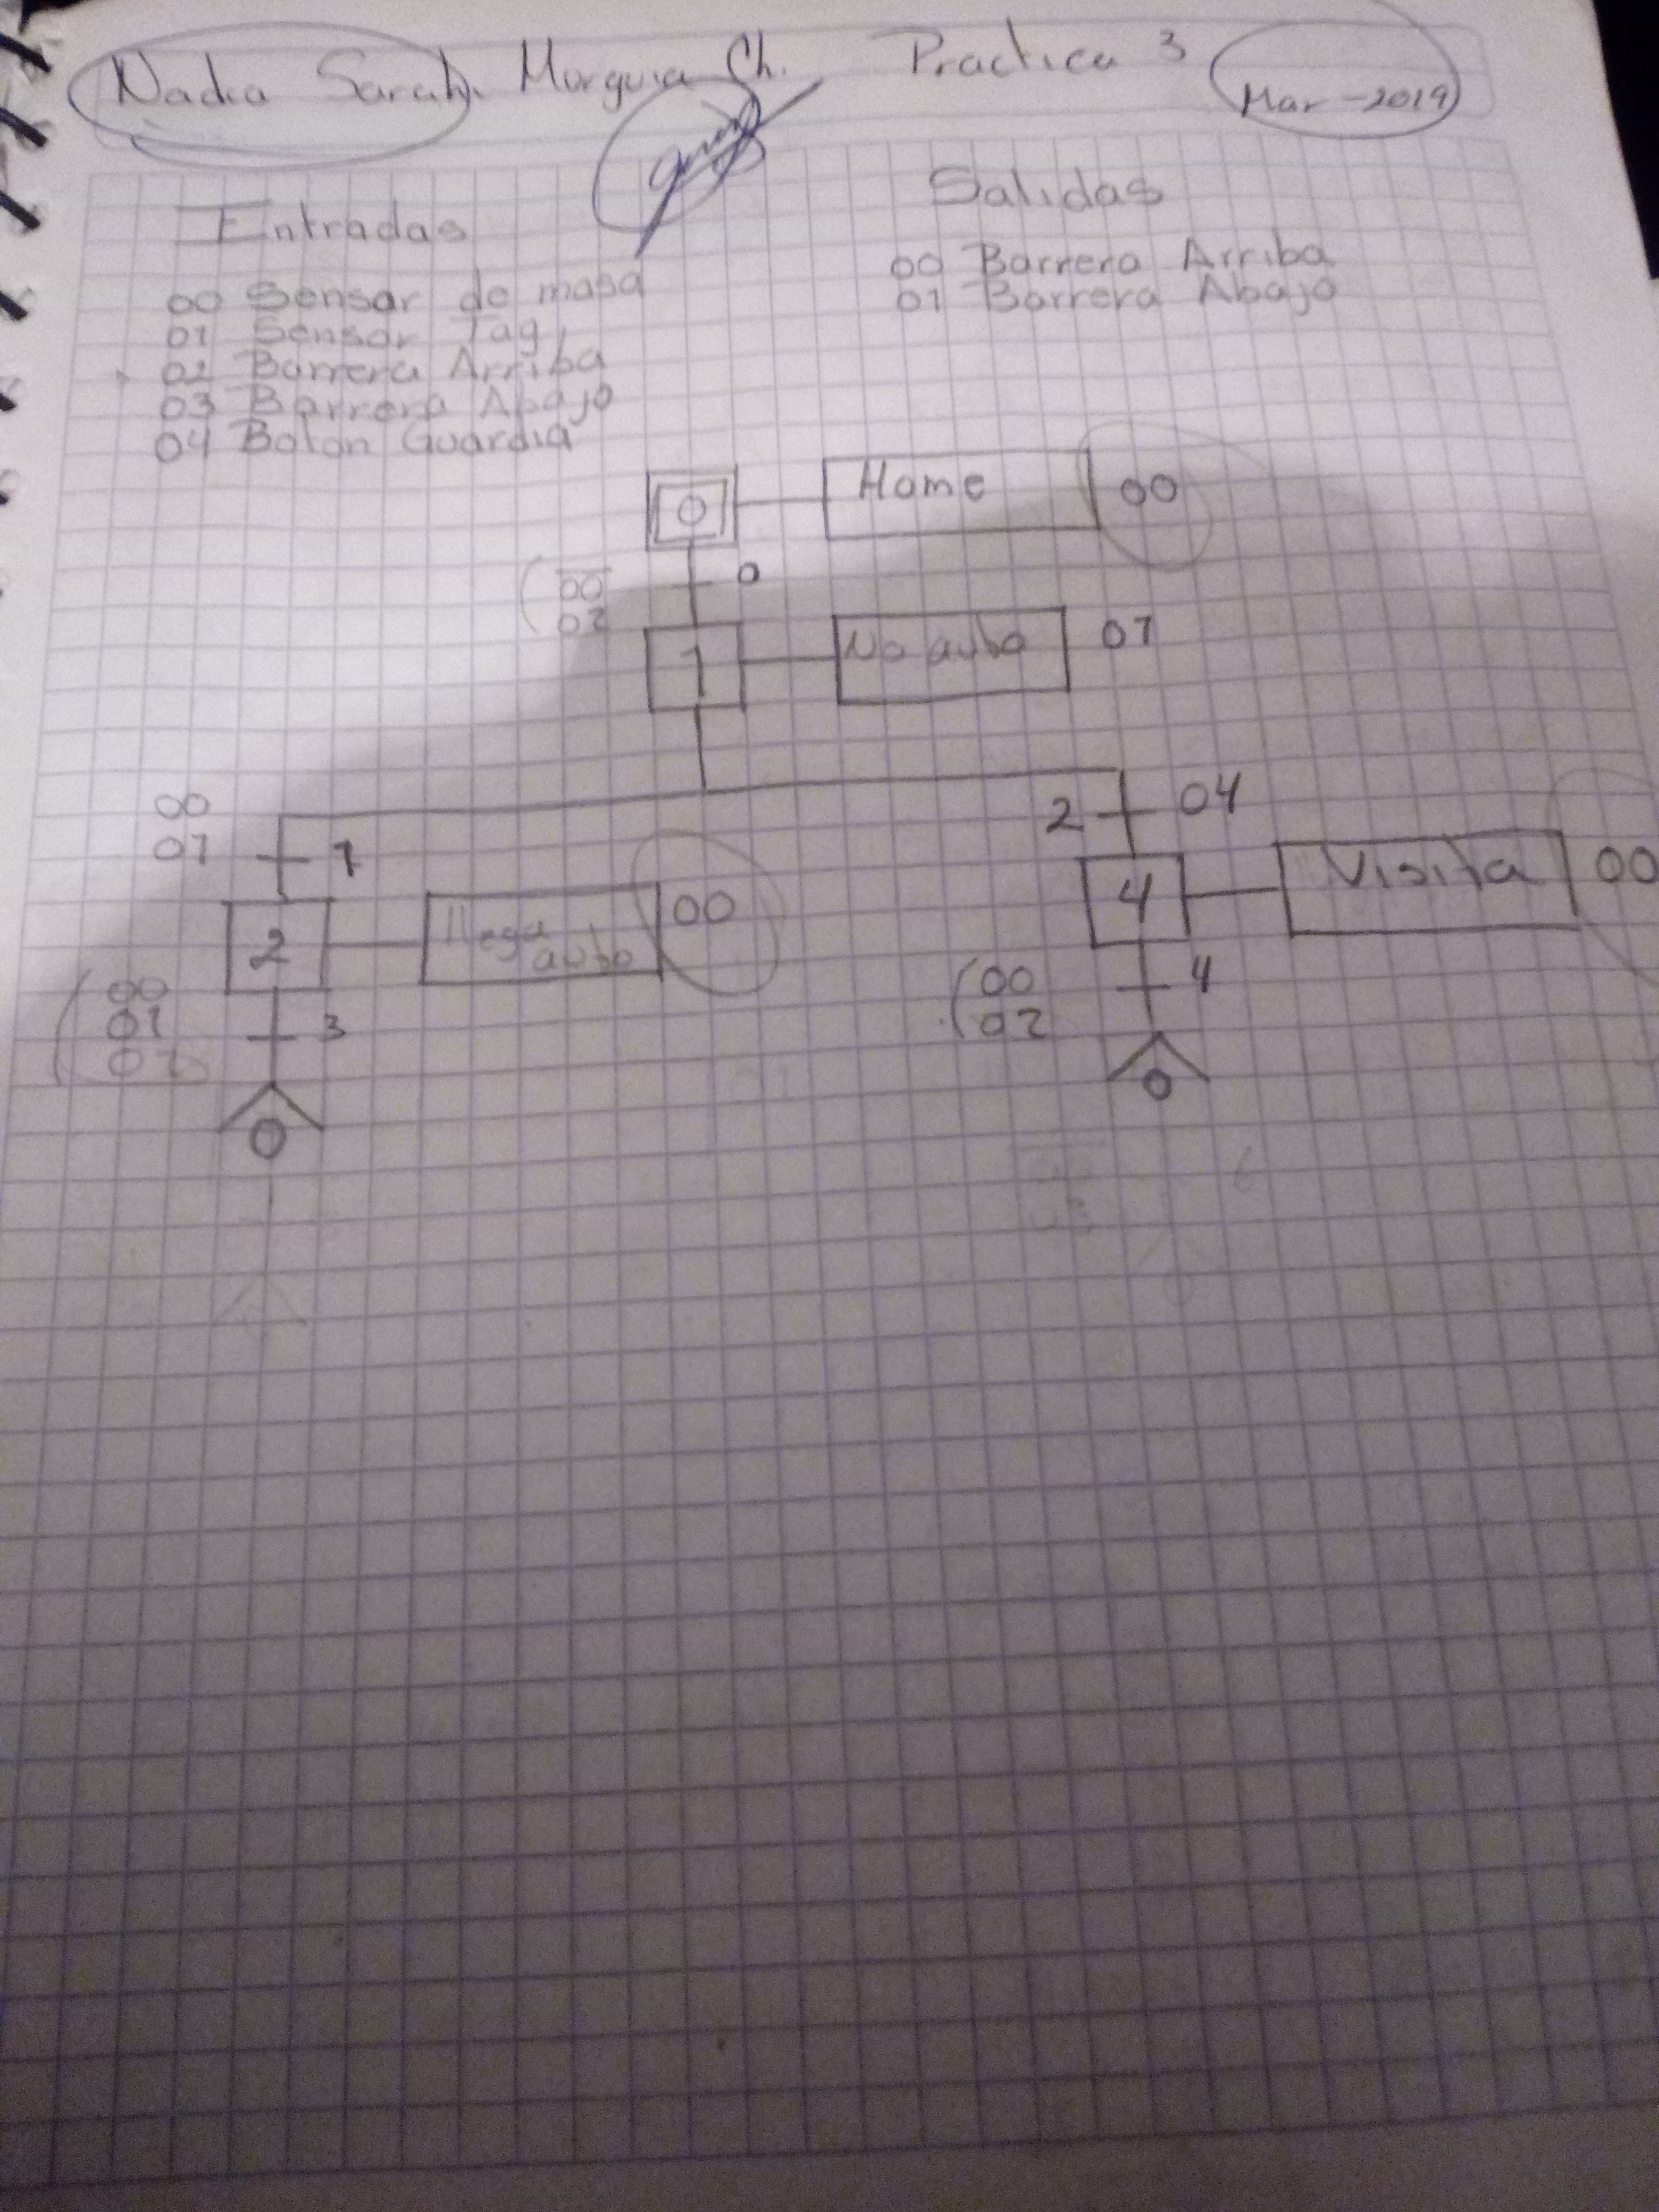 Nadia Sarah Murguia Ch. Practica 3
Mar-2019
Entradas
00 Sensor de masa
01 Sensor Tag
02 Barrera Arriba
03 Barrera Abajo
04 Boton Guardia
Salidas
00 Barrera Arriba
01 Barrera Abajo
0 Home 00
00 0
02
1 No auto 01
00
01 1
2 04
2 llega auto 00
4 Visita 00
00
01 3
02
00 4
02
0
0